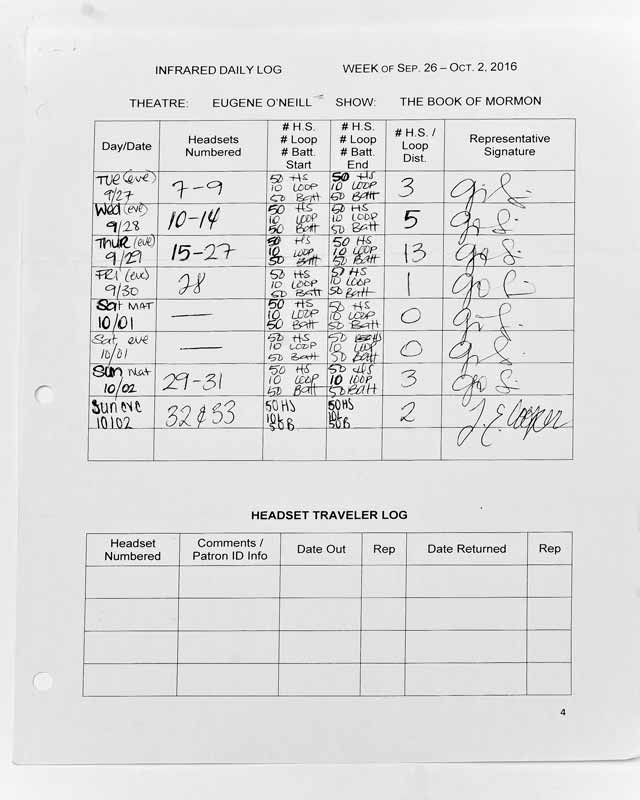 INFRARED DAILY LOG WEEK OF SEP. 26 – OCT. 2, 2016
THEATRE: EUGENE O'NEILL SHOW: THE BOOK OF MORMON
Day/Date Headsets Numbered # H.S. # Loop # Batt. Start # H.S. # Loop # Batt. End # H.S. / Loop Dist. Representative Signature
TUE (eve) 9/27 7-9 50 HS 10 LOOP 50 Batt 50 HS 10 LOOP 50 Batt 3
Wed (eve) 9/28 10-14 50 HS 10 LOOP 50 Batt 50 HS 10 LOOP 50 Batt 5
THUR (eve) 9/29 15-27 50 HS 10 LOOP 50 Batt 50 HS 10 LOOP 50 Batt 13
FRI (eve) 9/30 28 50 HS 10 LOOP 50 Batt 50 HS 10 LOOP 50 Batt 1
Sat MAT 10/01 — 50 HS 10 LOOP 50 Batt 50 HS 10 LOOP 50 Batt 0
Sat eve 10/01 — 50 HS 10 LOOP 50 Batt 50 HS 10 LOOP 50 Batt 0
Sun Mat 10/02 29-31 50 HS 10 LOOP 50 Batt 50 HS 10 LOOP 50 Batt 3
Sun eve 10/02 32 & 33 50 HS 10L 50B 50HS 10L 50B 2 J. E. Cooper
HEADSET TRAVELER LOG
Headset Numbered Comments / Patron ID Info Date Out Rep Date Returned Rep
4